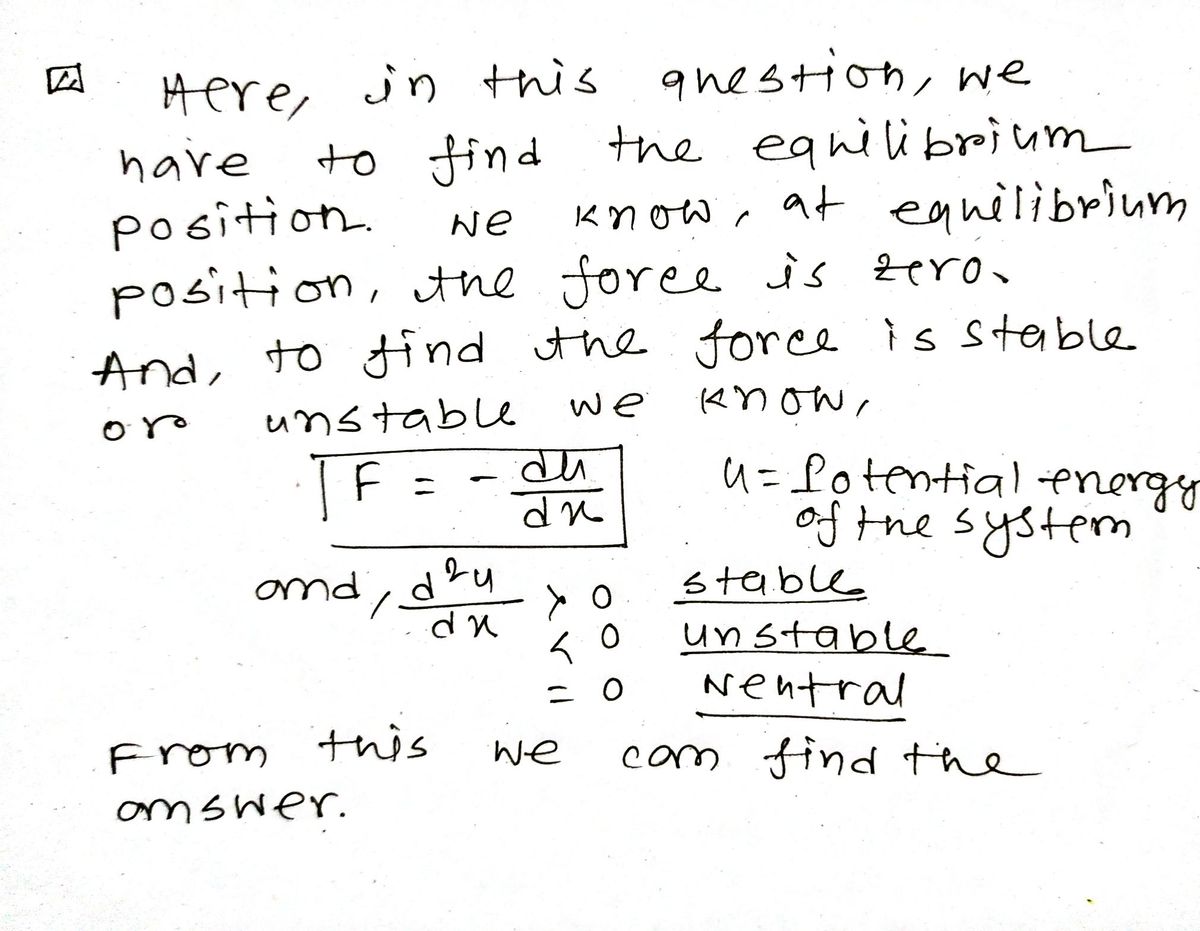 Here, in this question, we
have to find the equilibrium
position. We know, at equilibrium
position, the force is zero.
And, to find the force is stable
or unstable we know,
F = - du/dx u = Potential energy
of the system
and, d²u/dx > 0 stable
< 0 unstable
= 0 Neutral
From this we can find the
answer.